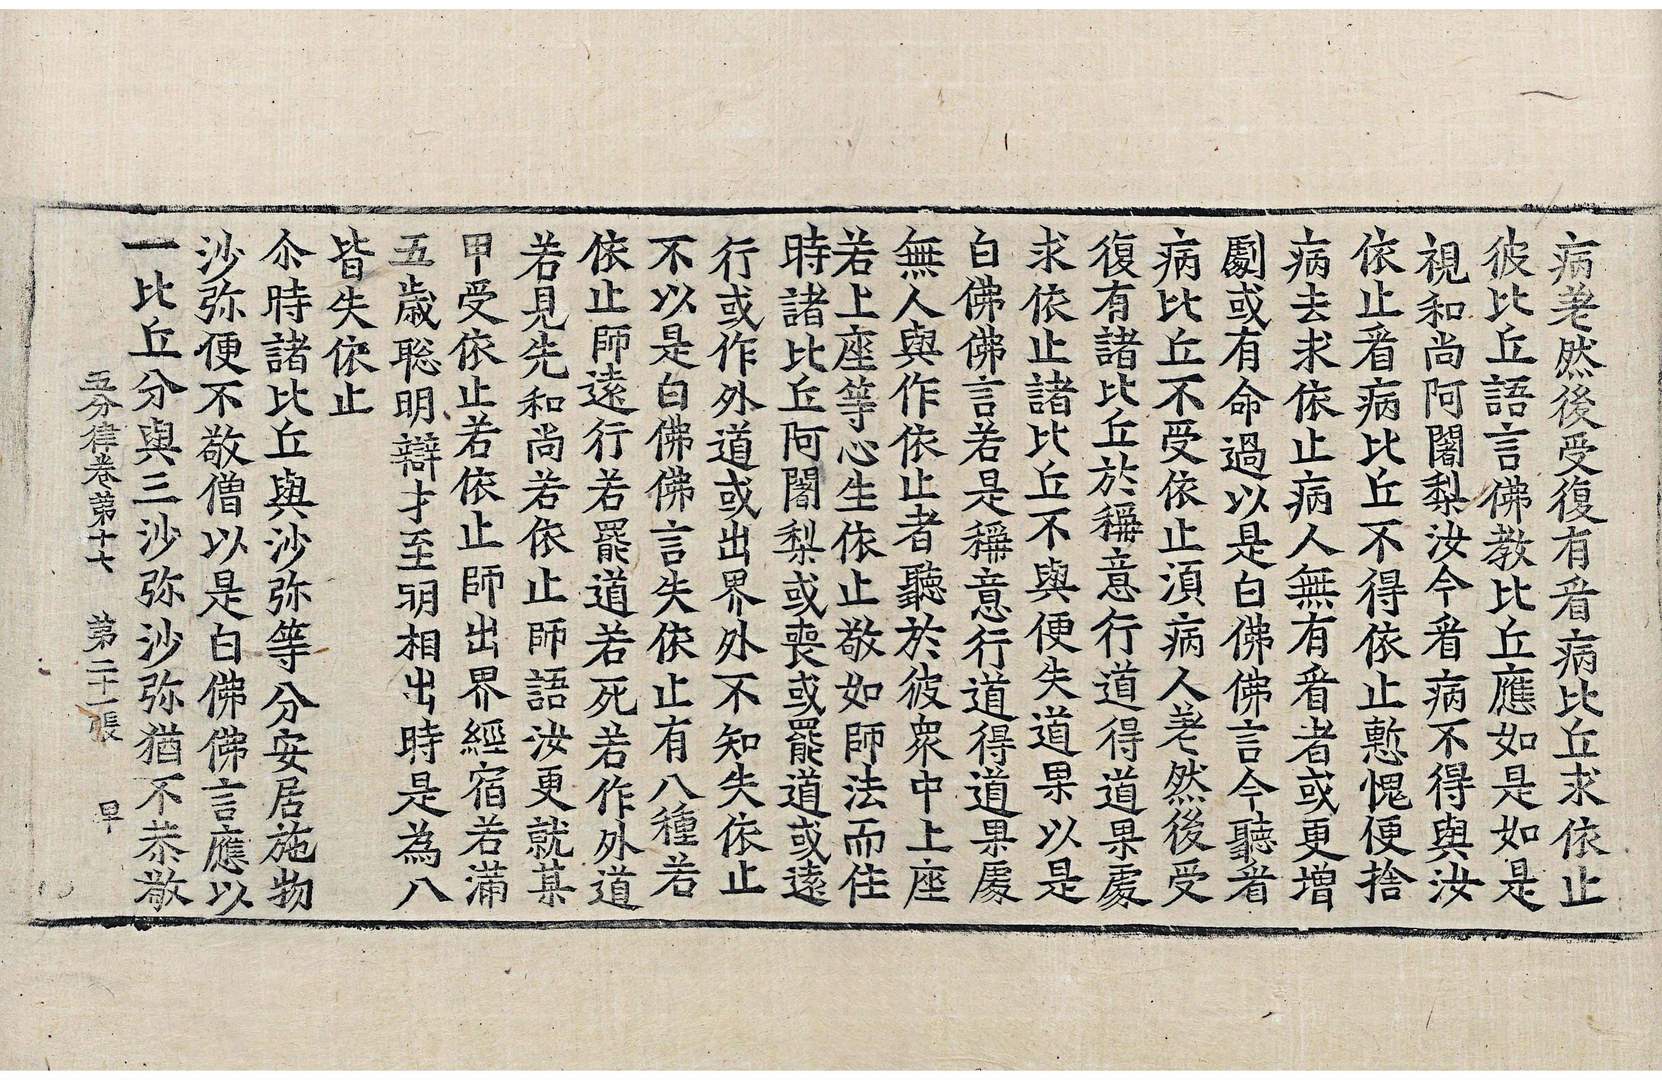 病差然後受復有看病比丘求依止
彼比丘語言佛教比丘應如是如是
視和尚阿闍梨汝今看病不得與汝
依止看病比丘不得依止慙愧便捨
病去求依止病人無有看者或更增
劇或有命過以是白佛佛言今聽看
病比丘不受依止湏病人差然後受
復有諸比丘於稱意行道得道果處
求依止諸比丘不與便失道果以是
白佛佛言若是稱意行道得道果處
無人與作依止者聽於彼衆中上座
若上座等心生依止敬如師法而住
時諸比丘阿闍梨或喪或罷道或遠
行或作外道或出界外不知失依止
不以是白佛佛言失依止有八種若
依止師遠行若罷道若死若作外道
若見先和尚若依止師語汝更就某
甲受依止若依止師出界經宿若滿
五歲聡明辯才至明相出時是為八
皆失依止
尒時諸比丘與沙弥等分安居施物
沙弥便不敬僧以是白佛佛言應以
一比丘分與三沙弥沙弥猶不恭敬
五分律卷第十七 第二十一張 早